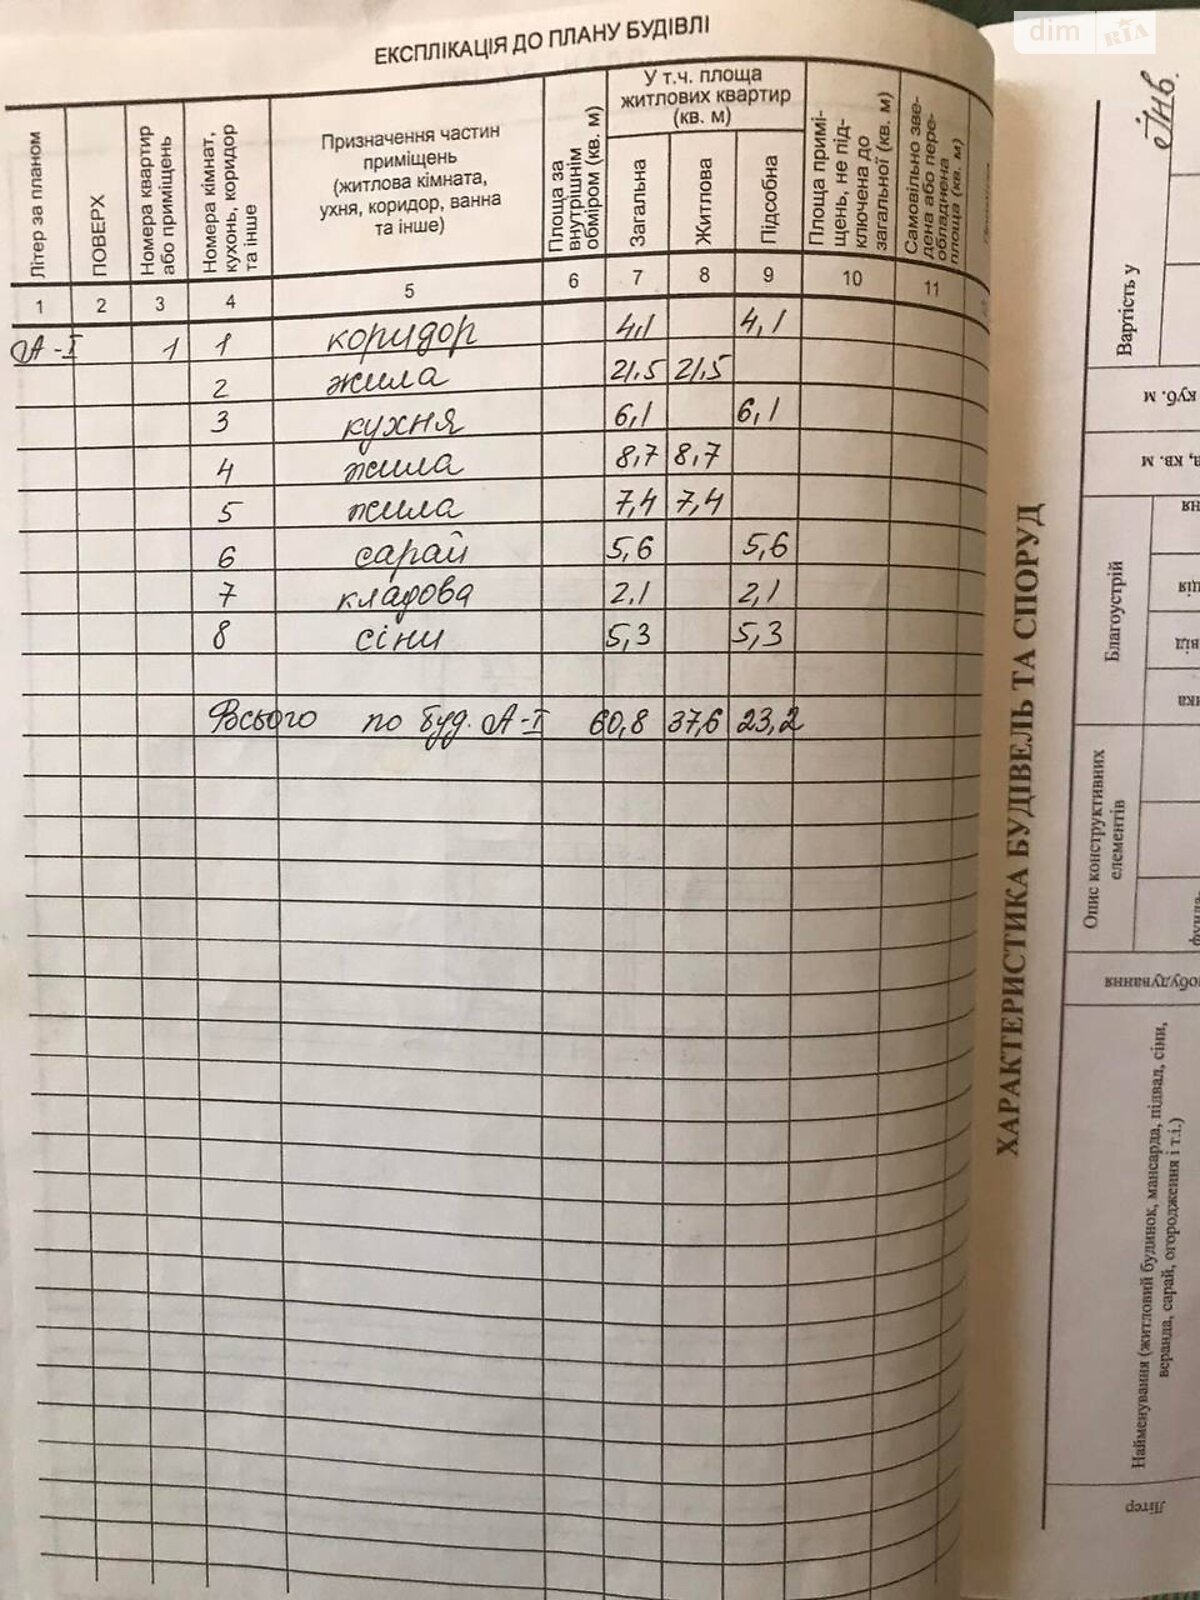 dim RIA
ЕКСПЛІКАЦІЯ ДО ПЛАНУ БУДІВЛІ
Літер за планом
ПОВЕРХ
Номера квартир
або приміщень
Номера кімнат,
кухонь, коридор
та інше
Призначення частин
приміщень
(житлова кімната,
ухня, коридор, ванна
та інше)
Площа за
внутрішнім
обміром (кв. м)
У т.ч. площа
житлових квартир
(кв. м)
Загальна
Житлова
Підсобна
Площа примі-
щень, не під-
ключена до
загальної (кв. м)
Самовільно зве-
дена або пере-
обладнена
площа (кв. м)
1 2 3 4 5 6 7 8 9 10 11
А-І 1 1 коридор 4,1 4,1
2 жила 21.5 21,5
3 кухня 6,1 6,1
4 жила 8,7 8,7
5 жила 7,4 7,4
6 сарай 5,6 5,6
7 кладова 2,1 2,1
8 сіни 5,3 5,3
Всього по буд. А-І 60,8 37,6 23,2
ХАРАКТЕРИСТИКА БУДІВЕЛЬ ТА СПОРУД
Інв.
Вартість у
куб. м
в, кв. м
Благоустрій
ня
ція
від
ика
Опис конструктивних
елементів
фунда-
обудування
Найменування (житловий будинок, мансарда, підвал, сіни,
веранда, сарай, огородження і т.і.)
Літер